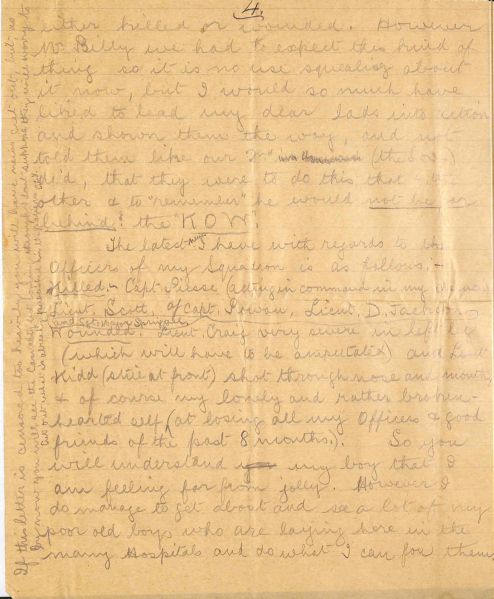 4.
either killed or wounded. However
Mr Billy we had to expect this kind of
thing so it is no use squealing about
it now, but I would so much have
liked to lead my dear lads into action
and shown them the way, and not
told them like our (the S.O.)
did, that they were to do this that &
other & to "remember" he would not be far
behind. the "K.O.W".
The latest news I have with regards to the
Officers of my Squadron is as follows:-
Killed:- Capt. Piesse (acting in command in my absence)
Lieut. Scott, Capt. Rowan, Lieut. D. Jackson
(and Sgt. Major Springall)
Wounded Lieut. Craig very severe in left leg
(which will have to be amputated) and Lieut
Kidd (still at front) shot through nose and mouth
& of course my lonely and rather broken-
hearted self, (at losing all my Officers & good
friends of the past 8 months.). So you
will understand my boy that I
am feeling far from jolly. However I
do manage to get about and see a lot of my
poor old boys who are laying here in the
many Hospitals and do what I can for them
If this letter is censored too heavily you will have news cut out, but no
by now you will see the Casualty lists,